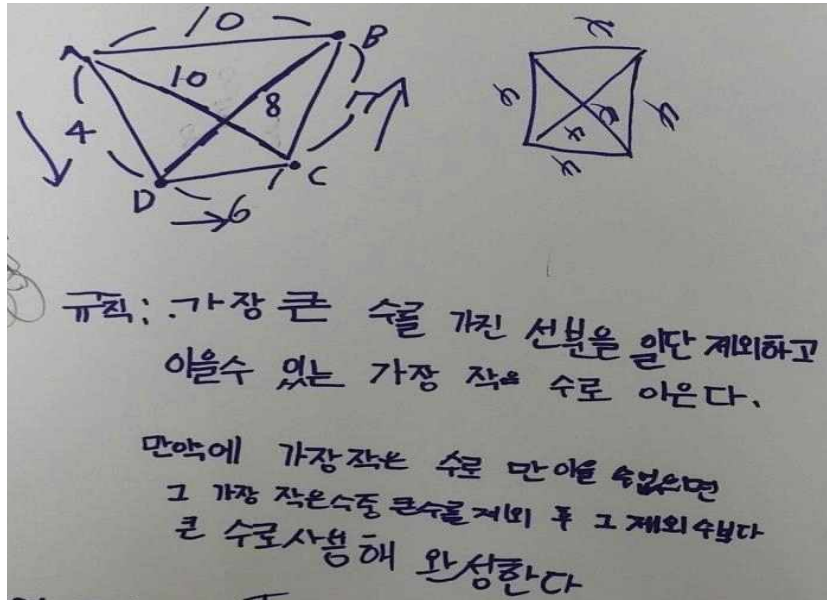 10
A
B
10
8
7
4
D
6
C
규칙: .가장 큰 수를 가진 선분을 일단 제외하고
이을수 있는 가장 작은 수로 이은다.
만약에 가장작은 수로 만 이을 수없으면
그 가장 작은수중 큰수를 제외 후 그 제외 수보다
큰 수로사용해 완성한다